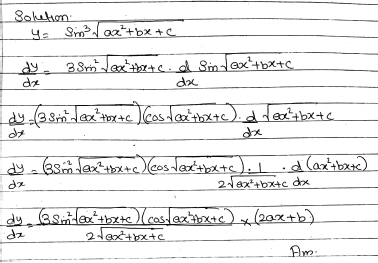 Solution.
y = Sin³√ax²+bx+c
dy/dx = 3Sin²√ax²+bx+c · d/dx Sin√ax²+bx+c
dy/dx = (3Sin²√ax²+bx+c)(cos√ax²+bx+c) · d/dx √ax²+bx+c
dy/dx = (3Sin²√ax²+bx+c)(cos√ax²+bx+c) · 1/2√ax²+bx+c · d/dx (ax²+bx+c)
dy/dx = (3Sin²√ax²+bx+c)(cos√ax²+bx+c)/2√ax²+bx+c × (2ax+b)
Ans.